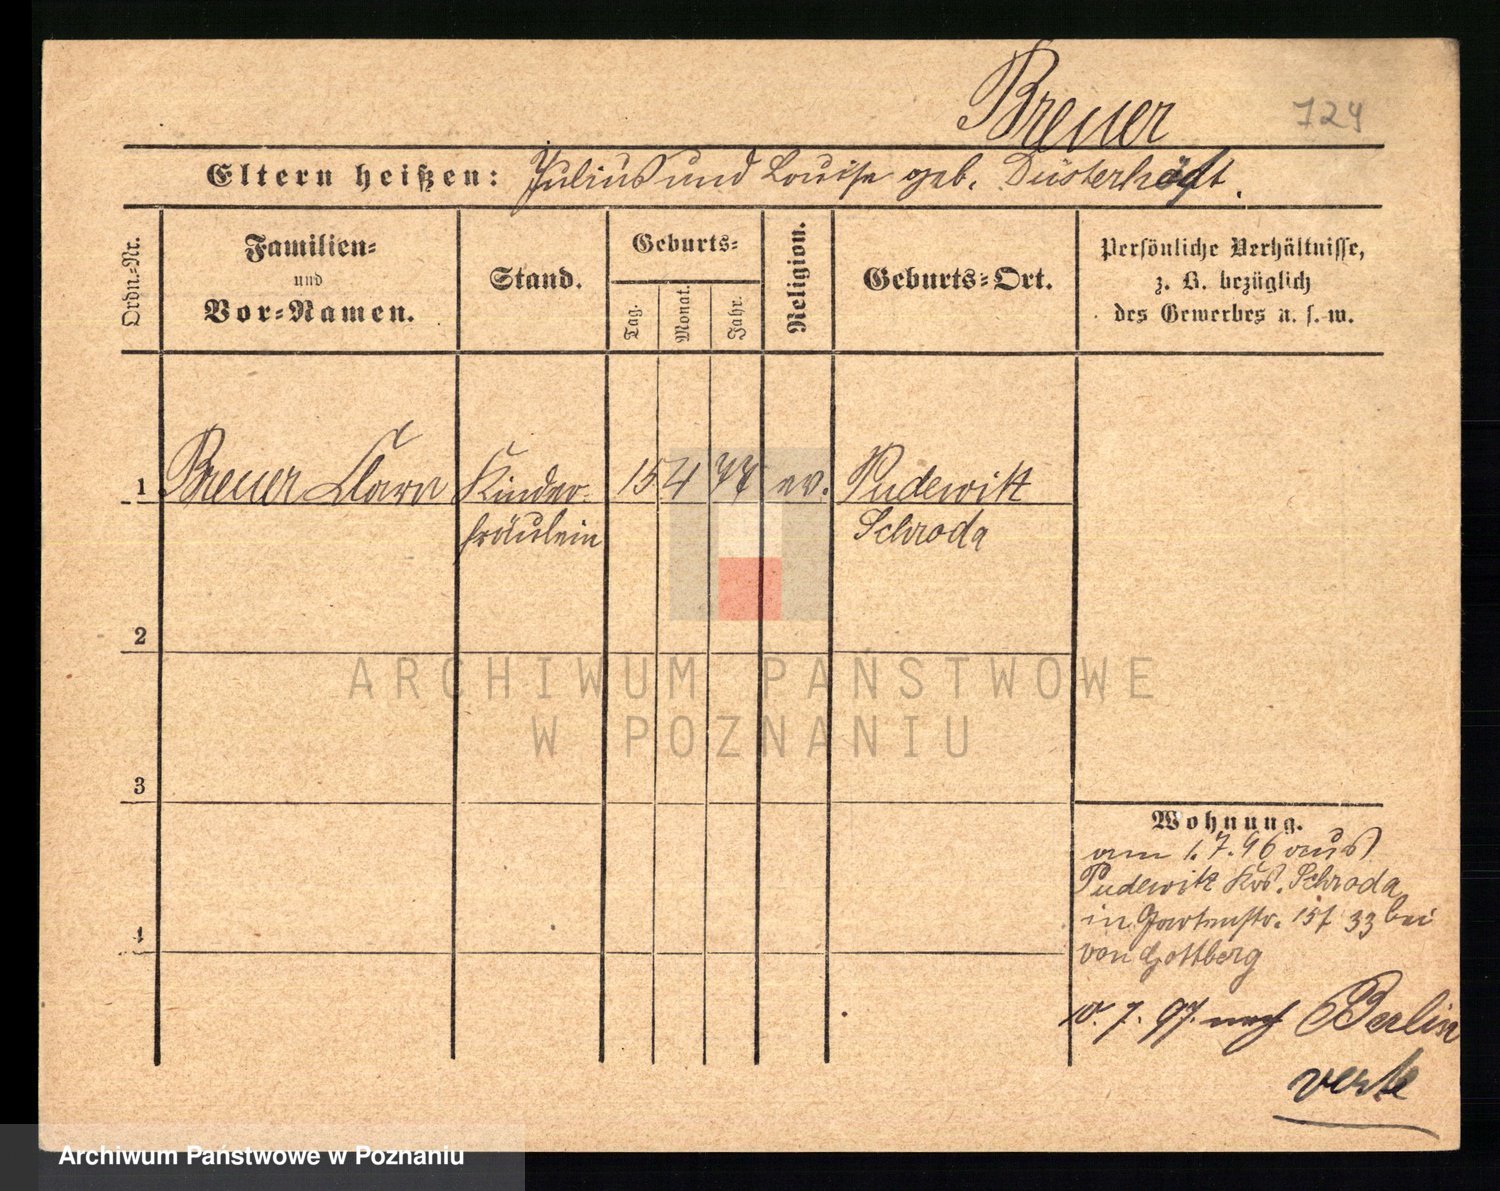 Breuer 724
Eltern heißen: Julius und Louise geb. Düsterhöft.
Ordn.-Nr.
Familien-
und
Vor-Namen.
Stand.
Geburts-
Tag.
Monat.
Jahr.
Religion.
Geburts-Ort.
Persönliche Verhältnisse,
z. B. bezüglich
des Gewerbes u. s. w.
1 Breuer Clara Kinder- 15 4 77 ev. Pudewitz
fräulein Schroda
2
ARCHIWUM PAŃSTWOWE
W POZNANIU
3
Wohnung.
am 1.7.96 aus
Pudewitz Krs. Schroda
in Gartenstr. 15f 33 bei
von Gottberg
4
10. 7. 97. nach Berlin
verte
Archiwum Państwowe w Poznaniu